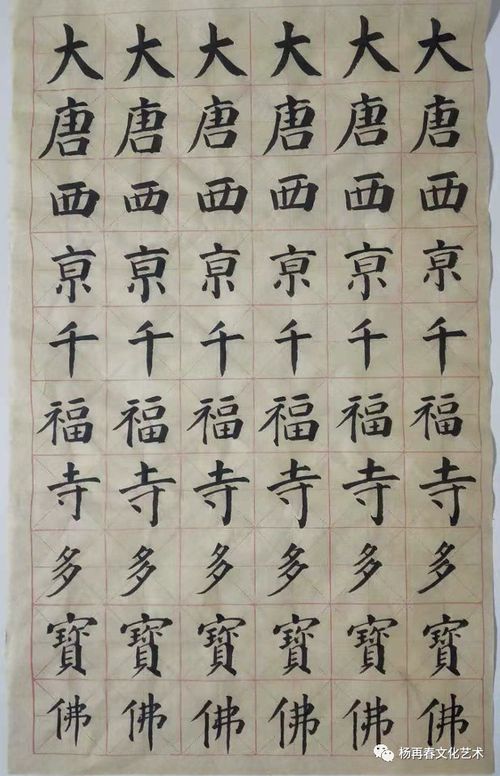 大唐西亰千福寺多寶佛
大唐西亰千福寺多寶佛
大唐西亰千福寺多寶佛
大唐西亰千福寺多寶佛
大唐西亰千福寺多寶佛
大唐西亰千福寺多寶佛
杨再春文化艺术